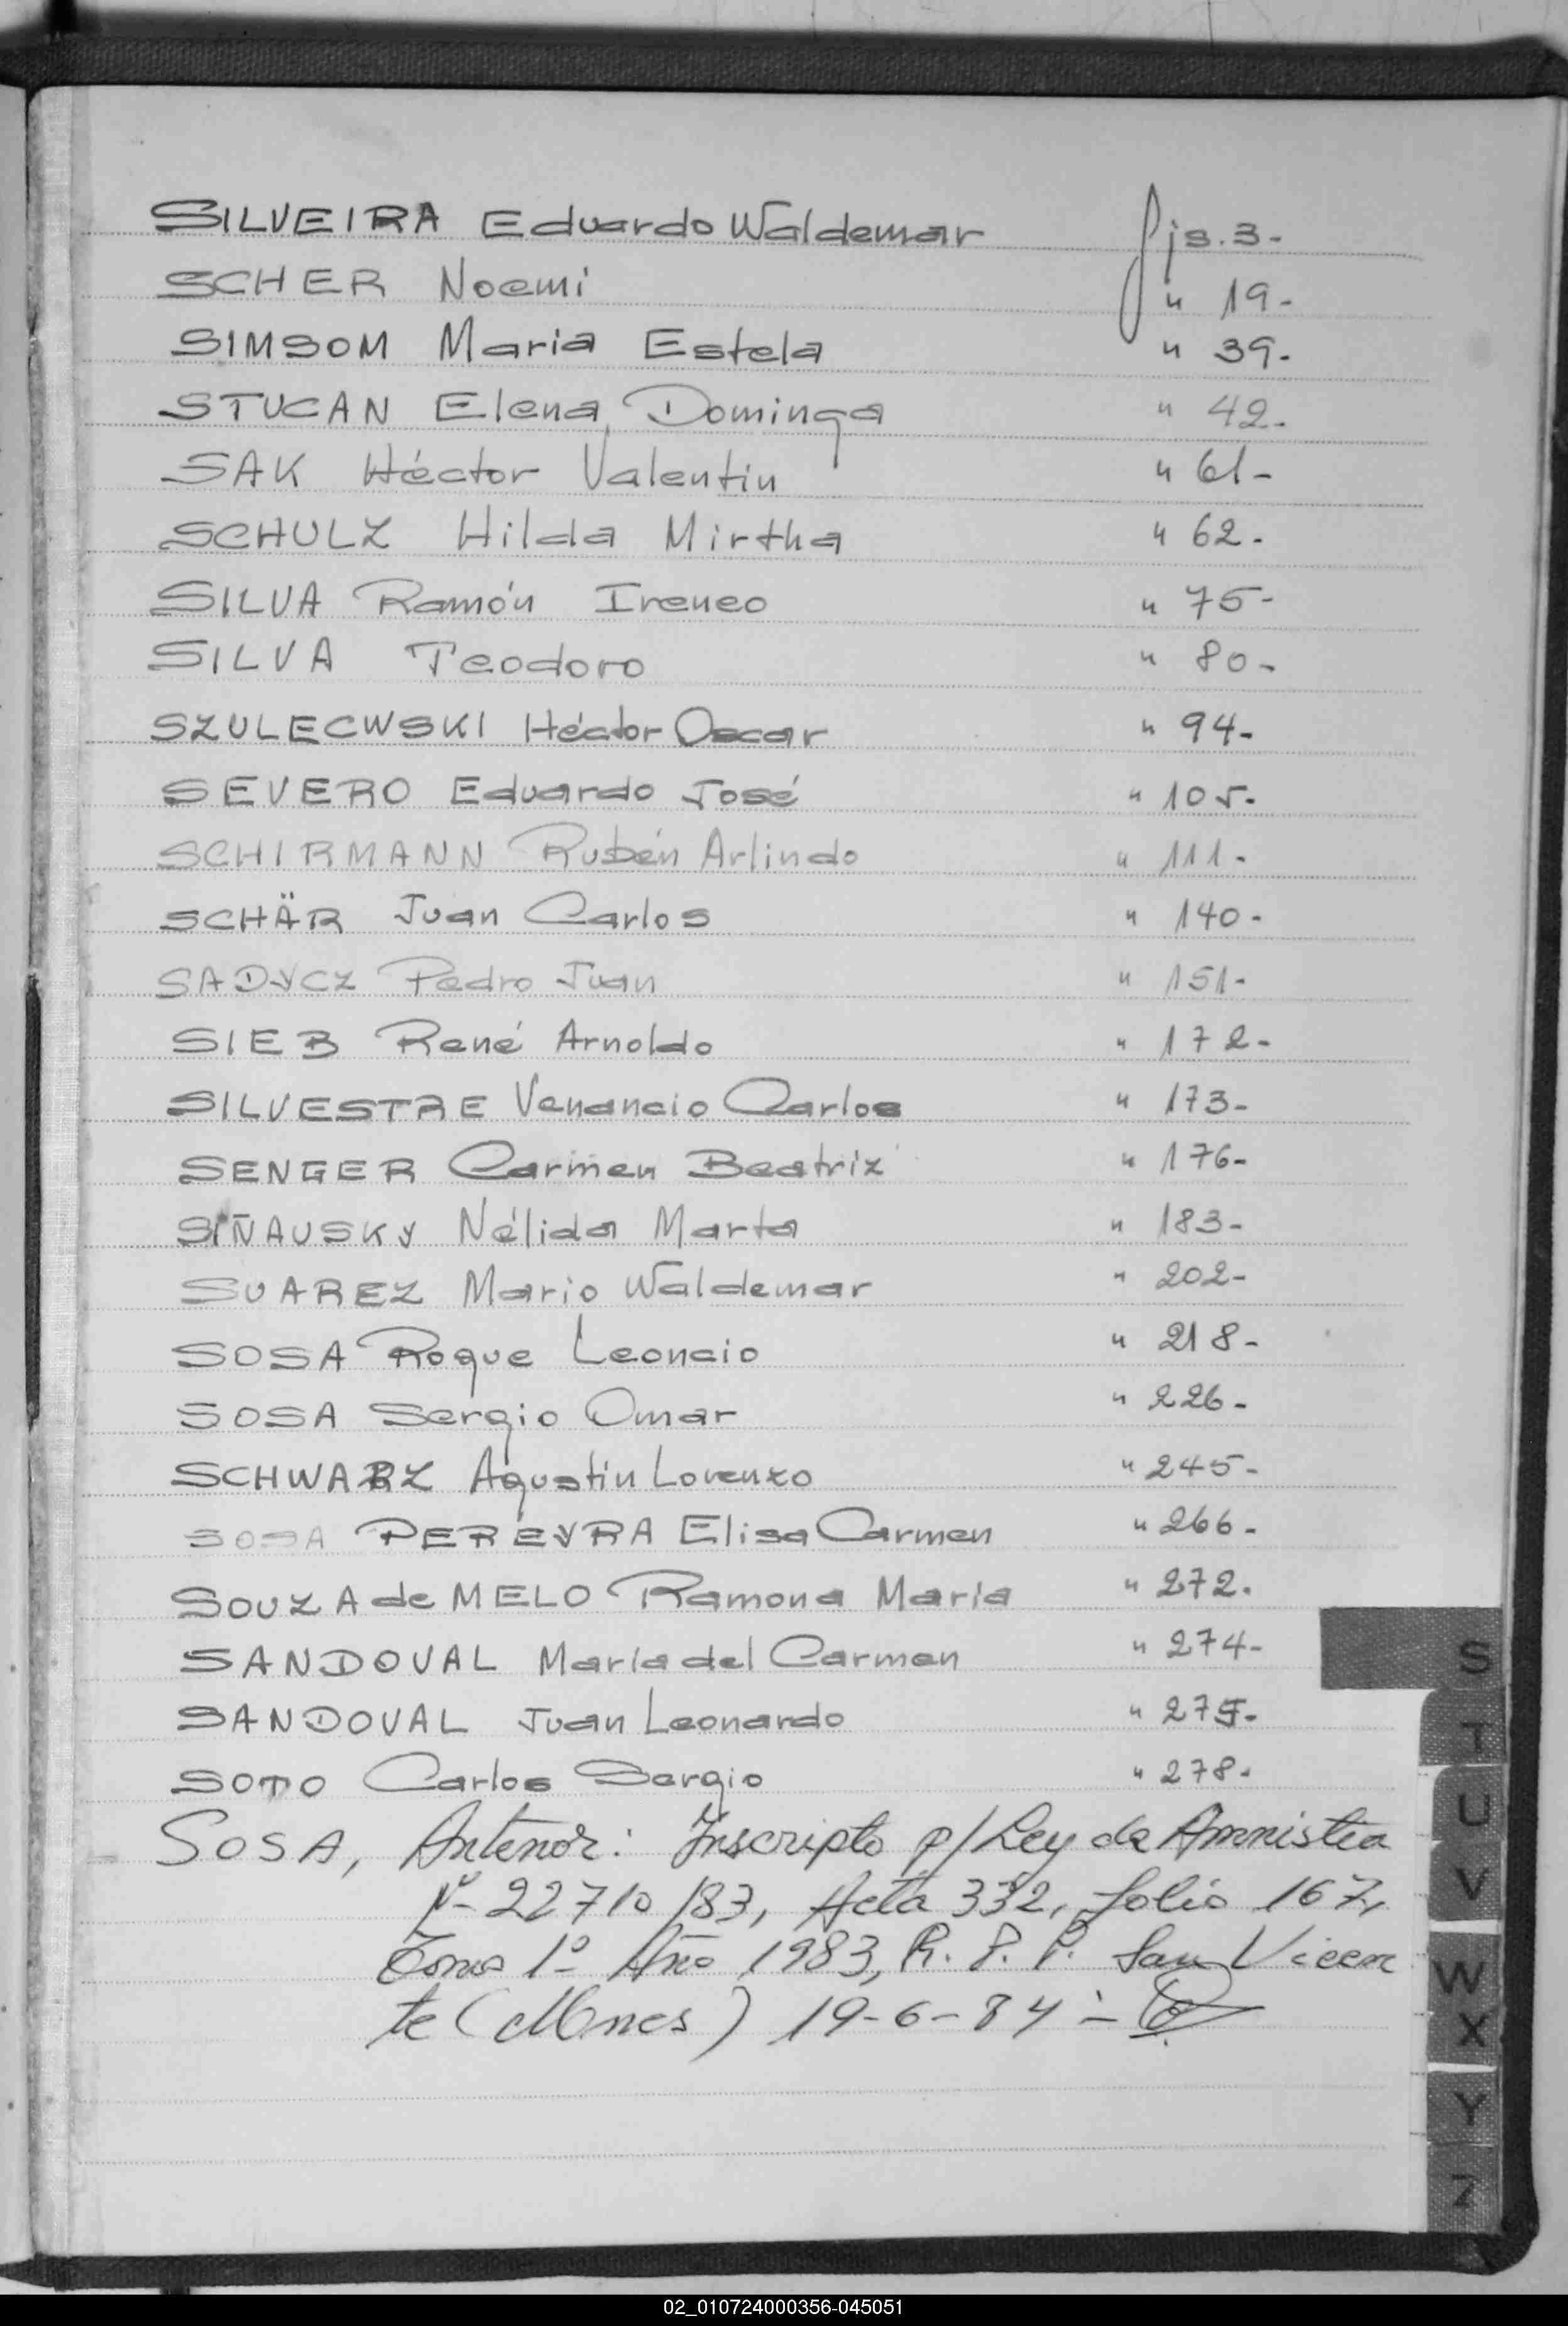 SILVEIRA Eduardo Waldemar fjs. 3-
SCHER Noemi " 19-
SIMSOM Maria Estela " 39-
STUCAN Elena Dominga " 42-
SAK Héctor Valentin " 61-
SCHULZ Hilda Mirtha " 62-
SILVA Ramón Ireneo " 75-
SILVA Teodoro " 80-
SZULECWSKI Héctor Oscar " 94-
SEVERO Eduardo José " 105-
SCHIRMANN Rubén Arlindo " 111-
SCHÄR Juan Carlos " 140-
SADYCZ Pedro Juan " 151-
SIEB René Arnoldo " 172-
SILVESTRE Venancio Carlos " 173-
SENGER Carmen Beatriz " 176-
SIÑAUSKY Nélida Marta " 183-
SUAREZ Mario Waldemar " 202-
SOSA Roque Leoncio " 218-
SOSA Sergio Omar " 226-
SCHWARZ Agustin Lorenzo " 245-
SOSA PEREYRA Elisa Carmen " 266-
SOUZA de MELO Ramona Maria " 272.
SANDOVAL María del Carmen " 274-
SANDOVAL Juan Leonardo " 275-
SOTO Carlos Sergio " 278-
SOSA, Antenor: Inscripto p/Ley de Amnistia
Nº 22710/83, Acta 332, folio 167,
Tomo 1º Año 1983, R. P. P. San Vicen
te (Mnes) 19-6-84-
S
T
U
V
W
X
Y
Z
02_010724000356-045051